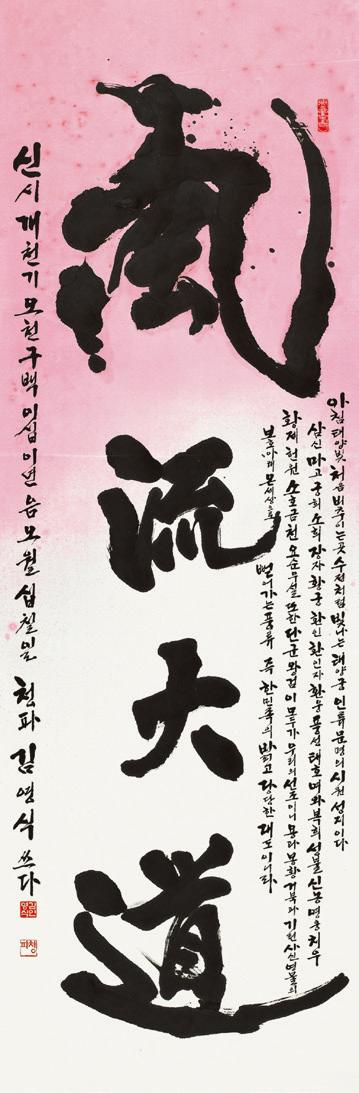 風流大道
아침 태양빛 처음 비추이는 곳 수정처럼 빛나는 태양궁 인류문명의 시원 성지이다
삼신 마고 궁희 소희 장자 황궁 환인 환인자 환웅 풍선 태호 며와 부희 성불 신농 명웅 치우
황제 헌원 소호금천 오순우설 또한 단군왕검이 모두가 우리의 선조이니 용과 봉황 거북과 기린 사신 영물의
보호아래 온세상으로 뻗어가는 풍류 주 한민족의 밝고 당당한 대도이어라
신시개천기 오천구백이십이년 음 오월 십칠일 청파 김영식 쓰다